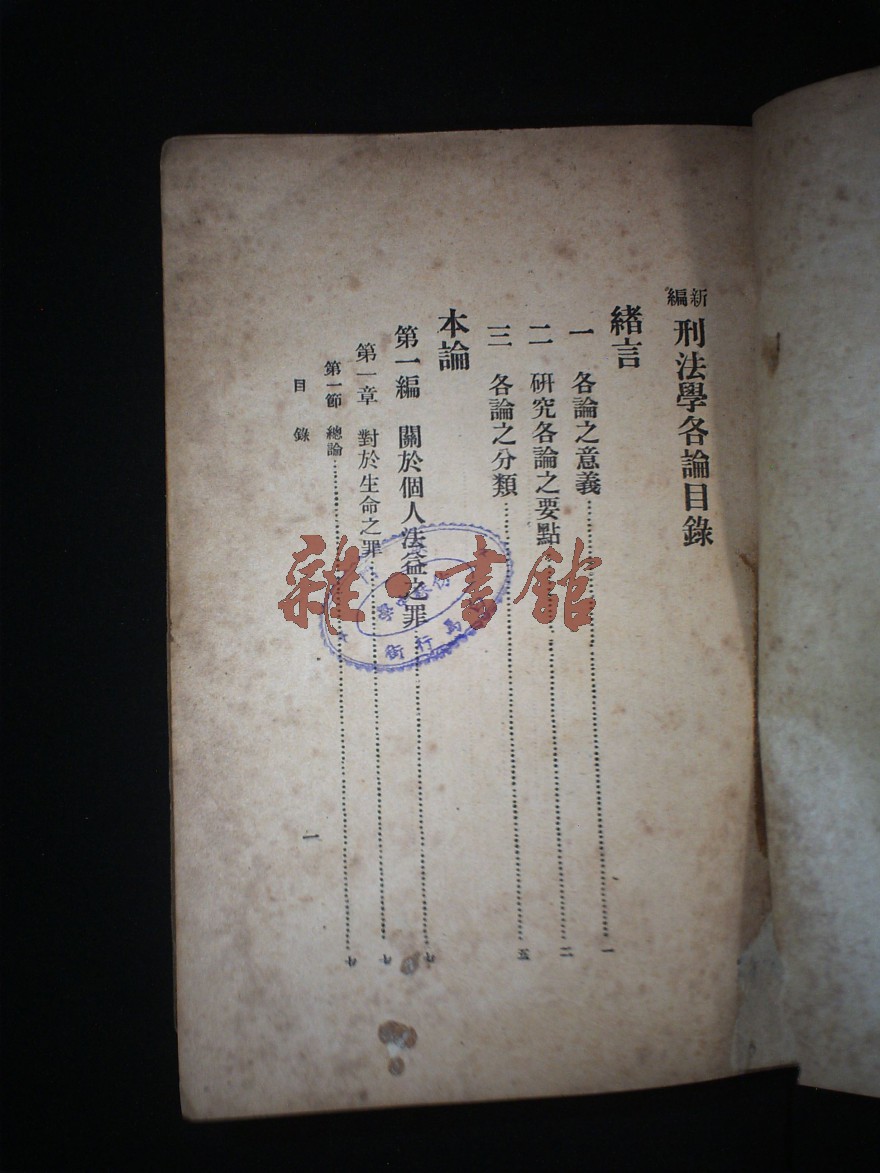 新編 刑法學各論目錄
緒言
一 各論之意義……一
二 研究各論之要點……二
三 各論之分類……五
本論
第一編 關於個人法益之罪……
第一章 對於生命之罪……
第一節 總論……
目錄 一
雜·書館
中學
馬行街